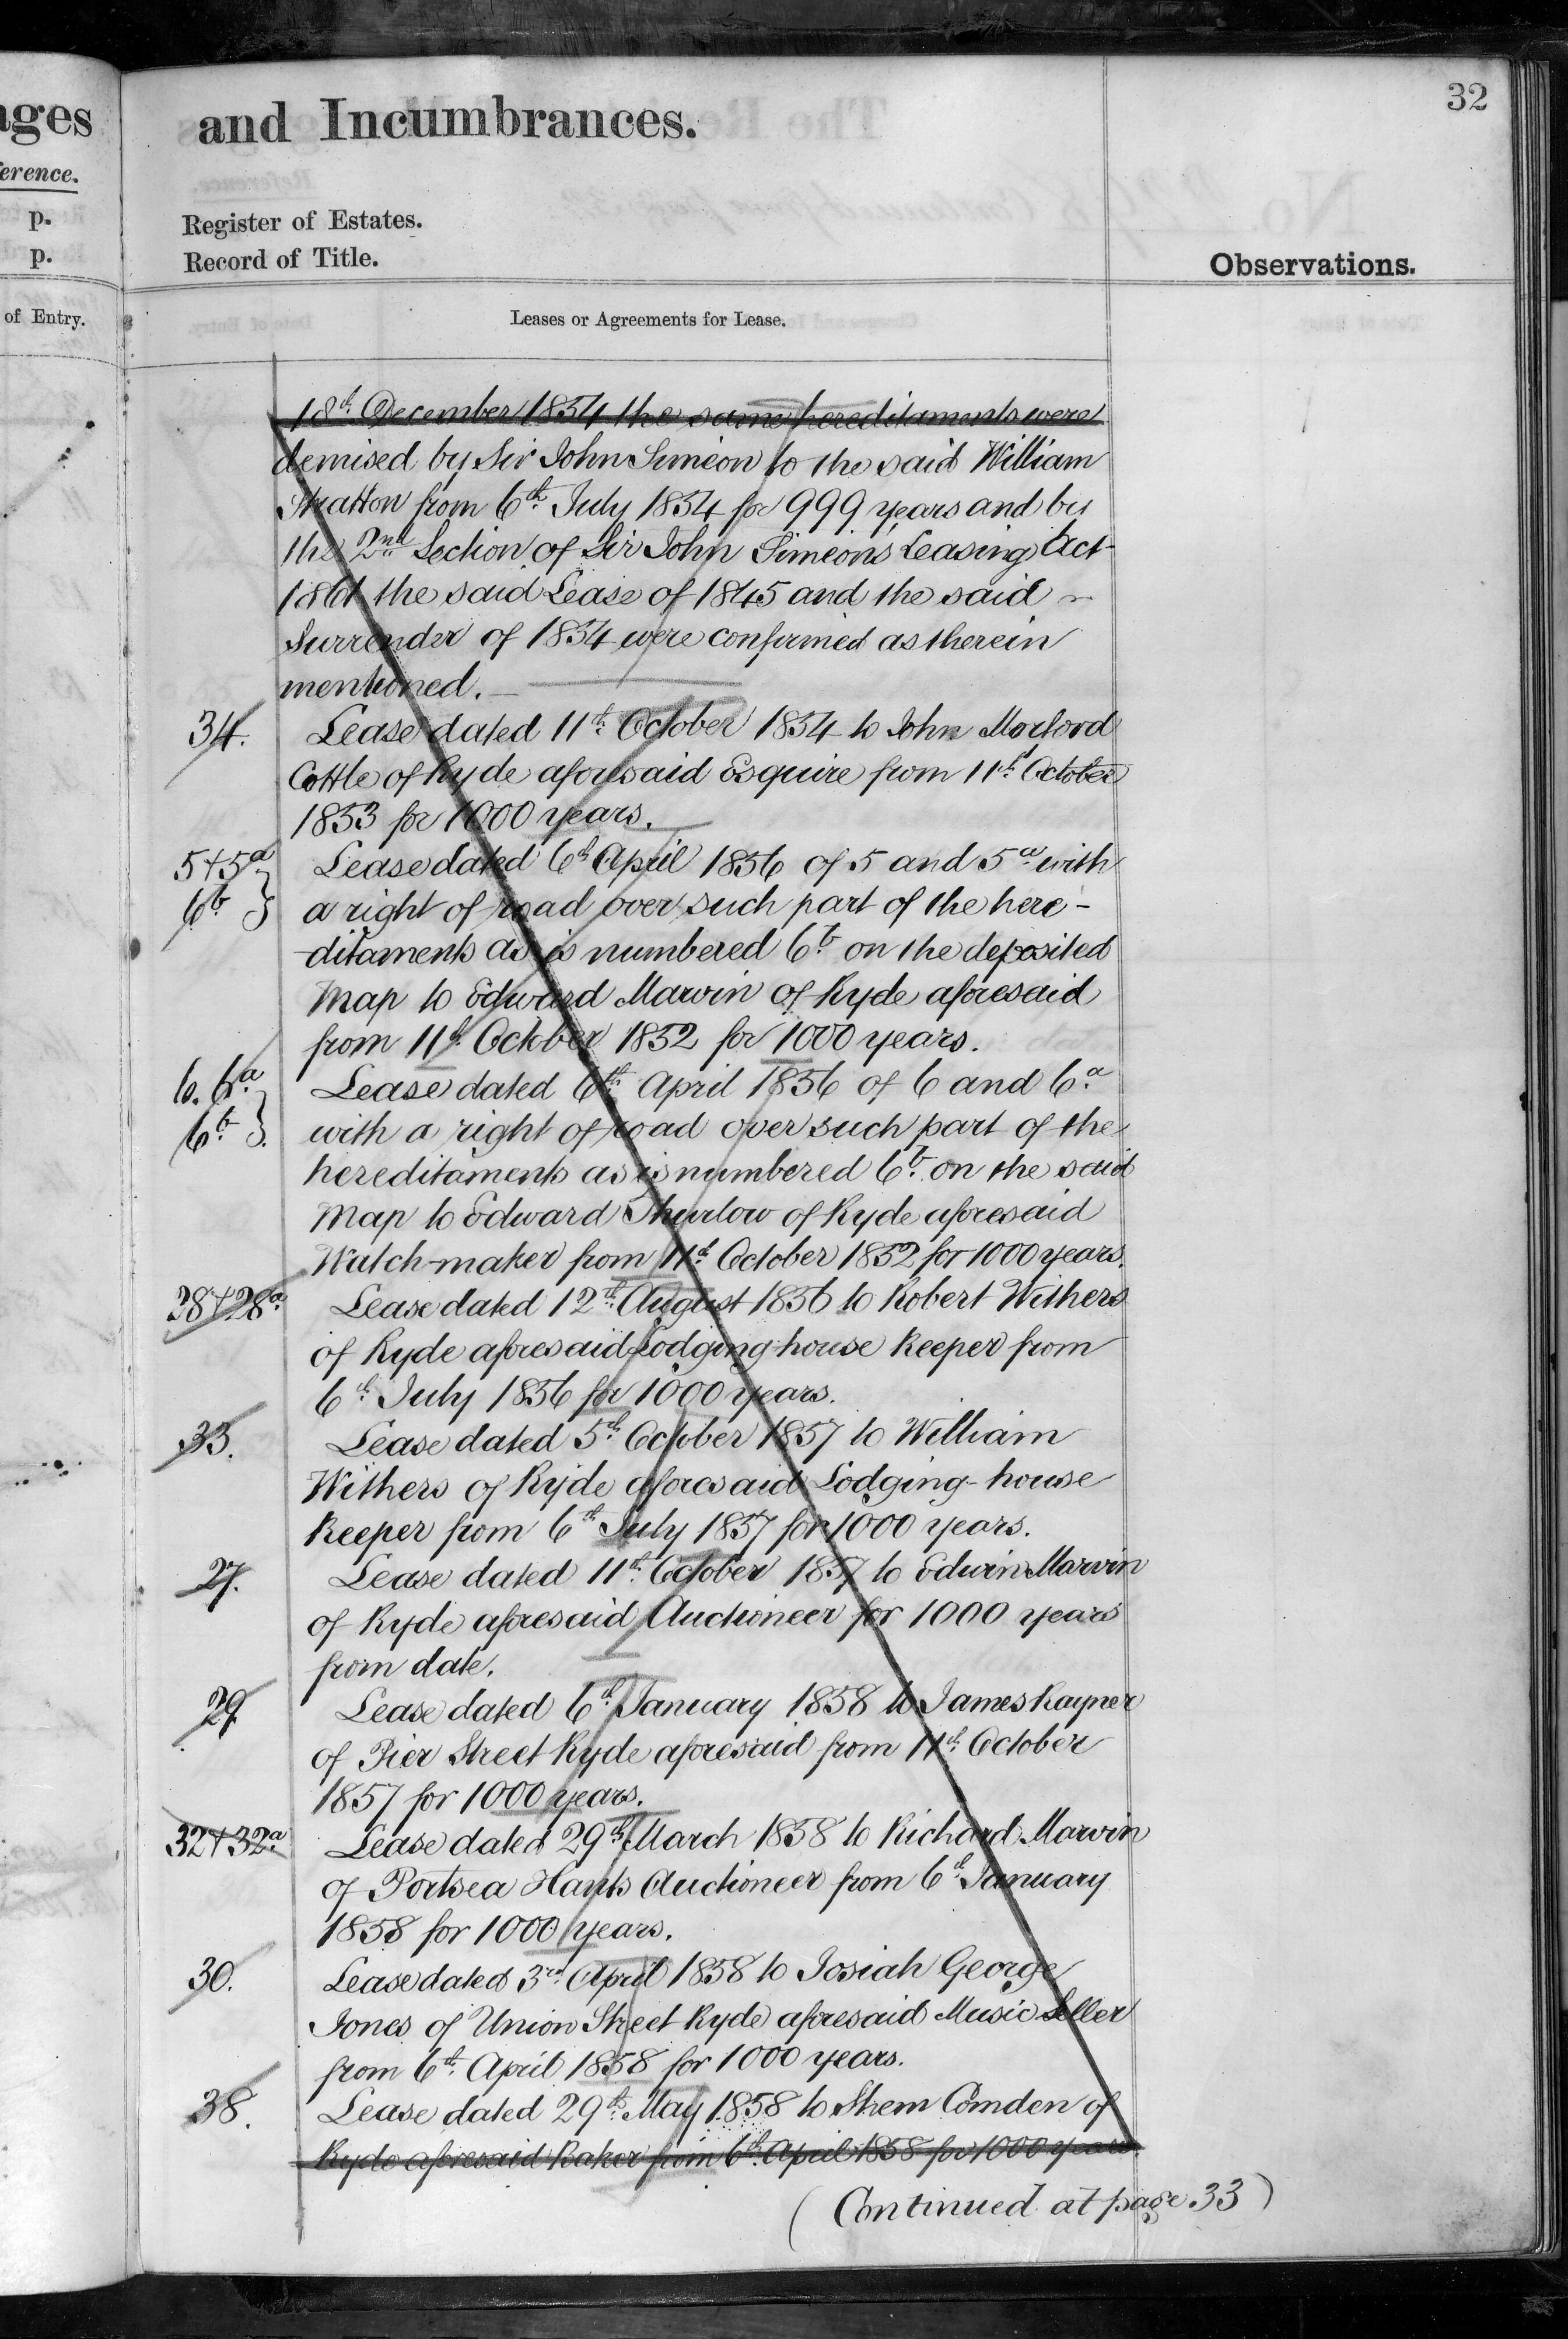 ages
and Incumbrances.
32
erence.
p.
Register of Estates.
p.
Record of Title.
Observations.
of Entry.
Leases or Agreements for Lease.
18th. December 1854 the same hereditaments were
demised by Sir John Simeon to the said William
Stratton from 6th. July 1854 for 999 years and by
the 2nd Section of Sir John Simeon's Leasing Act
1861 the said Lease of 1845 and the said
Surrender of 1854 were confirmed as therein
mentioned.
34. Lease dated 11th. October 1854 to John Morford
Cottle of Ryde aforesaid Esquire from 11th. October
1853 for 1000 years.
5+5a Lease dated 6th April 1856 of 5 and 5a. with
6b } a right of road over such part of the here-
-ditaments as is numbered 6b. on the deposited
Map to Edward Marvin of Ryde aforesaid
from 11th. October 1852 for 1000 years.
6. 6a Lease dated 6th. April 1856 of 6 and 6.a
6b. }. with a right of road over such part of the
hereditaments as is numbered 6b. on the said
Map to Edward Thurlow of Ryde aforesaid
Watch-maker from 11th. October 1852 for 1000 years.
28+28a. Lease dated 12th. August 1856 to Robert Withers
of Ryde aforesaid Lodging-house Keeper from
6th. July 1856 for 1000 years.
33. Lease dated 5th. October 1857 to William
Withers of Ryde aforesaid Lodging-house
Keeper from 6th July 1857 for 1000 years.
27. Lease dated 11th. October 1857 to Edwin Marvin
of Ryde aforesaid Auctioneer for 1000 years
from date.
29 Lease dated 6th. January 1858 to James Rayner
of Pier Street Ryde aforesaid from 11th. October
1857 for 1000 years.
32+32a Lease dated 29th. March 1858 to Richard Marvin
of Portsea Hants Auctioneer from 6th. January
1858 for 1000 years.
30. Lease dated 3rd. April 1858 to Josiah George
Jones of Union Street Ryde aforesaid Music Seller
from 6th. April 1858 for 1000 years.
38. Lease dated 29th. May 1858 to Shem Comden of
Ryde aforesaid Baker from 6th. April 1858 for 1000 years.
(Continued at page 33)